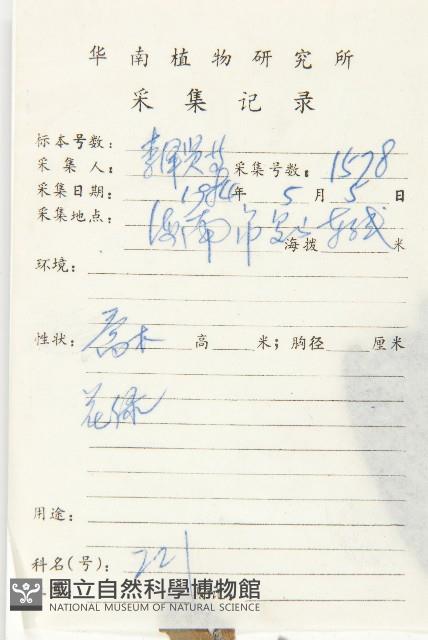 华南植物研究所
采集记录
标本号数:
采集人: 李泽贤等 采集号数: 1578
采集日期: 年 5 月 5 日
采集地点: 海南
海拨 米
环境:
性状: 乔木 高 米; 胸径 厘米
花绿
用途:
科名(号): 221
國立自然科學博物館
NATIONAL MUSEUM OF NATURAL SCIENCE